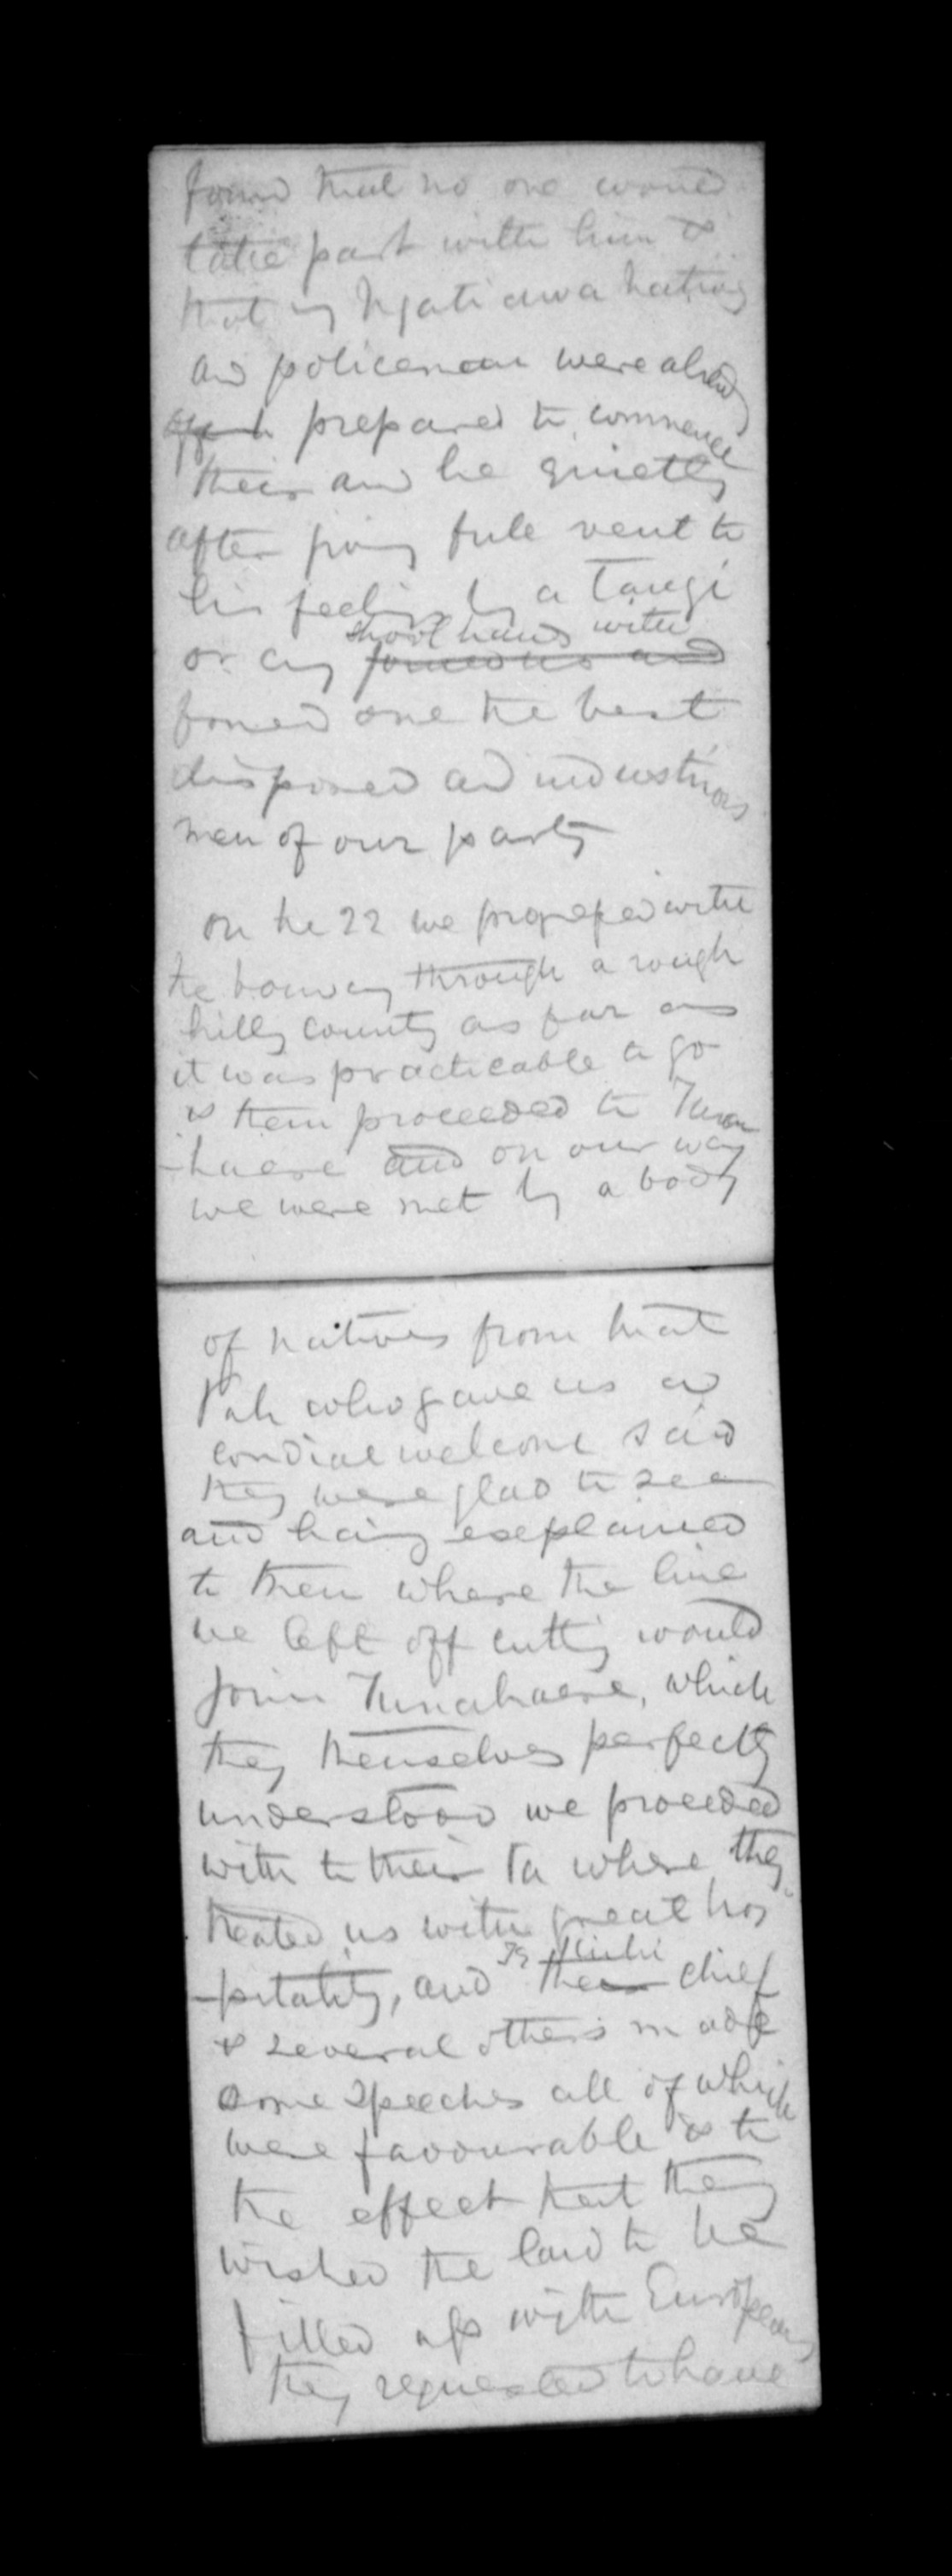 found that no one would
take part with him &
that my Ngatiawa natives
and policeman were already
prepared to commence
theirs and he quietly
after giving full vent to
his feelings by a Tangi
or cry shook hands with
joined us and
formed one the best
disposed and industrious
men of our party
On the 22 we progressed with
the boundary through a rough
hilly country as far as
it was practicable to go
& then proceeded to Tuna
-haere and on our way
we were met by a body
of natives from that
Pah who gave us a
cordial welcome said
they were glad to see
and having explained
to them where the line
we left off cutting would
join Tunahaere, which
they themselves perfectly
understood we proceeded
with to their Pa where they
treated us with great hos
-pitality, and their chief
& several others made
some speeches all of which
were favourable & to
the effect that they
wished the land to be
filled up with Europeans
they requested to have